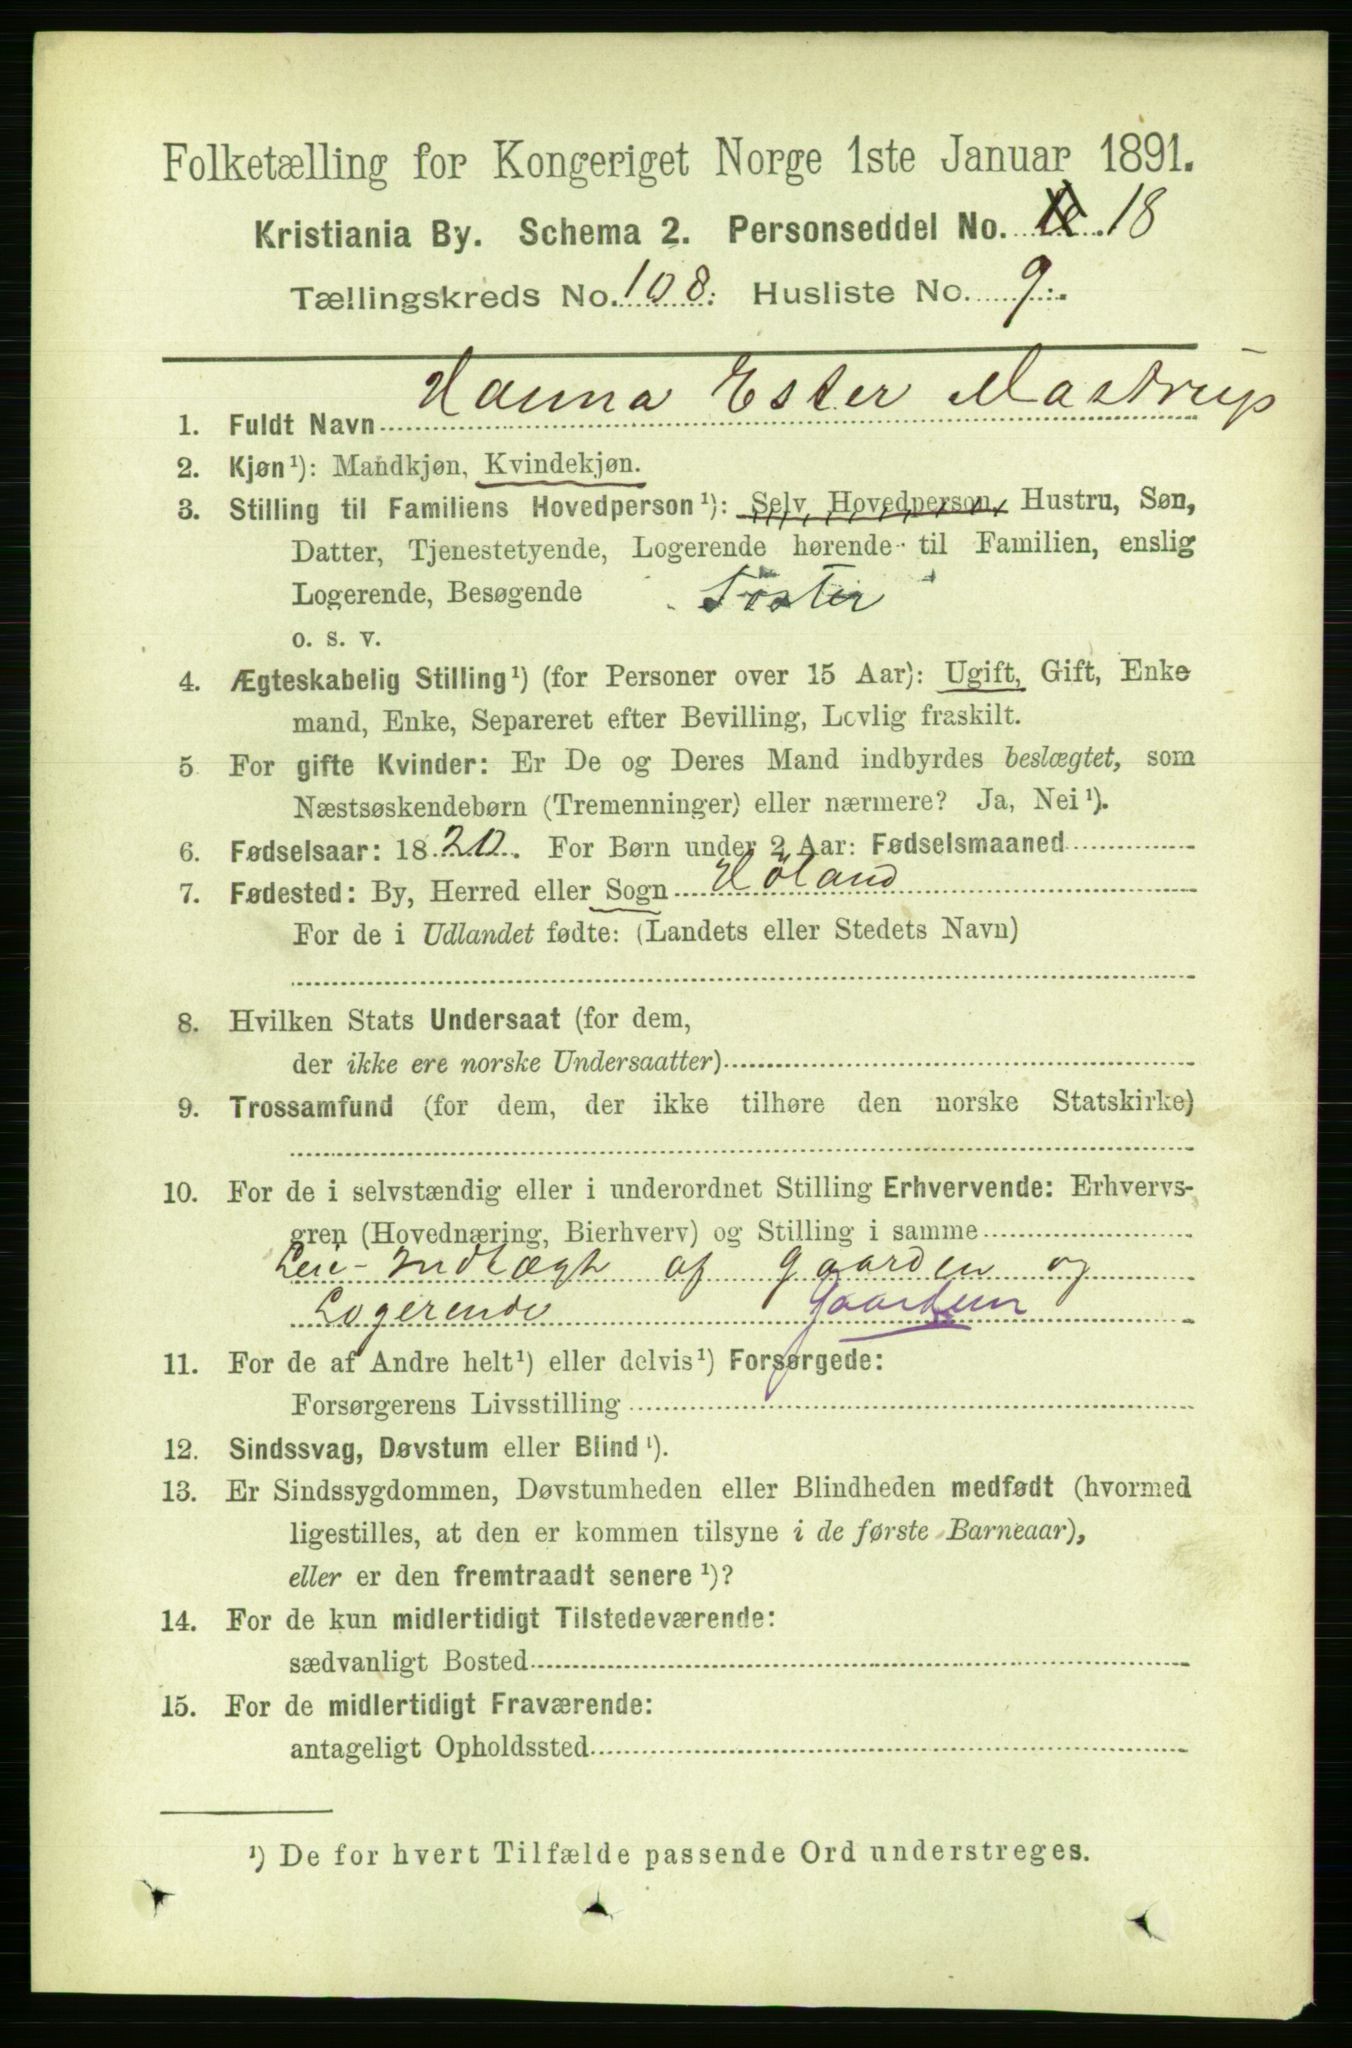 Folketælling for Kongeriget Norge 1ste Januar 1891.
Kristiania By. Schema 2. Personseddel No. 18
Tællingskreds No. 108. Husliste No. 9.
1. Fuldt Navn Hanna Ester Mastrup
2. Kjøn¹): Mandkjøn, Kvindekjøn.
3. Stilling til Familiens Hovedperson¹): Selv Hovedperson, Hustru, Søn,
Datter, Tjenestetyende, Logerende hørende til Familien, enslig
Logerende, Besøgende Söster
o. s. v.
4. Ægteskabelig Stilling¹) (for Personer over 15 Aar): Ugift, Gift, Enke
mand, Enke, Separeret efter Bevilling, Lovlig fraskilt.
5 For gifte Kvinder: Er De og Deres Mand indbyrdes beslægtet, som
Næstsøskendebørn (Tremenninger) eller nærmere? Ja, Nei¹).
6. Fødselsaar: 1820. For Børn under 2 Aar: Fødselsmaaned
7. Fødested: By, Herred eller Sogn Höland
For de i Udlandet fødte: (Landets eller Stedets Navn)
8. Hvilken Stats Undersaat (for dem,
der ikke ere norske Undersaatter)
9. Trossamfund (for dem, der ikke tilhøre den norske Statskirke)
10. For de i selvstændig eller i underordnet Stilling Erhvervende: Erhvervs-
gren (Hovednæring, Bierhverv) og Stilling i samme
Leie-Indtægt af Gaarden og
Logerende
11. For de af Andre helt¹) eller delvis¹) Forsørgede:
Forsørgerens Livsstilling
12. Sindssvag, Døvstum eller Blind¹).
13. Er Sindssygdommen, Døvstumheden eller Blindheden medfødt (hvormed
ligestilles, at den er kommen tilsyne i de første Barneaar),
eller er den fremtraadt senere¹)?
14. For de kun midlertidigt Tilstedeværende:
sædvanligt Bosted
15. For de midlertidigt Fraværende:
antageligt Opholdssted
¹) De for hvert Tilfælde passende Ord understreges.